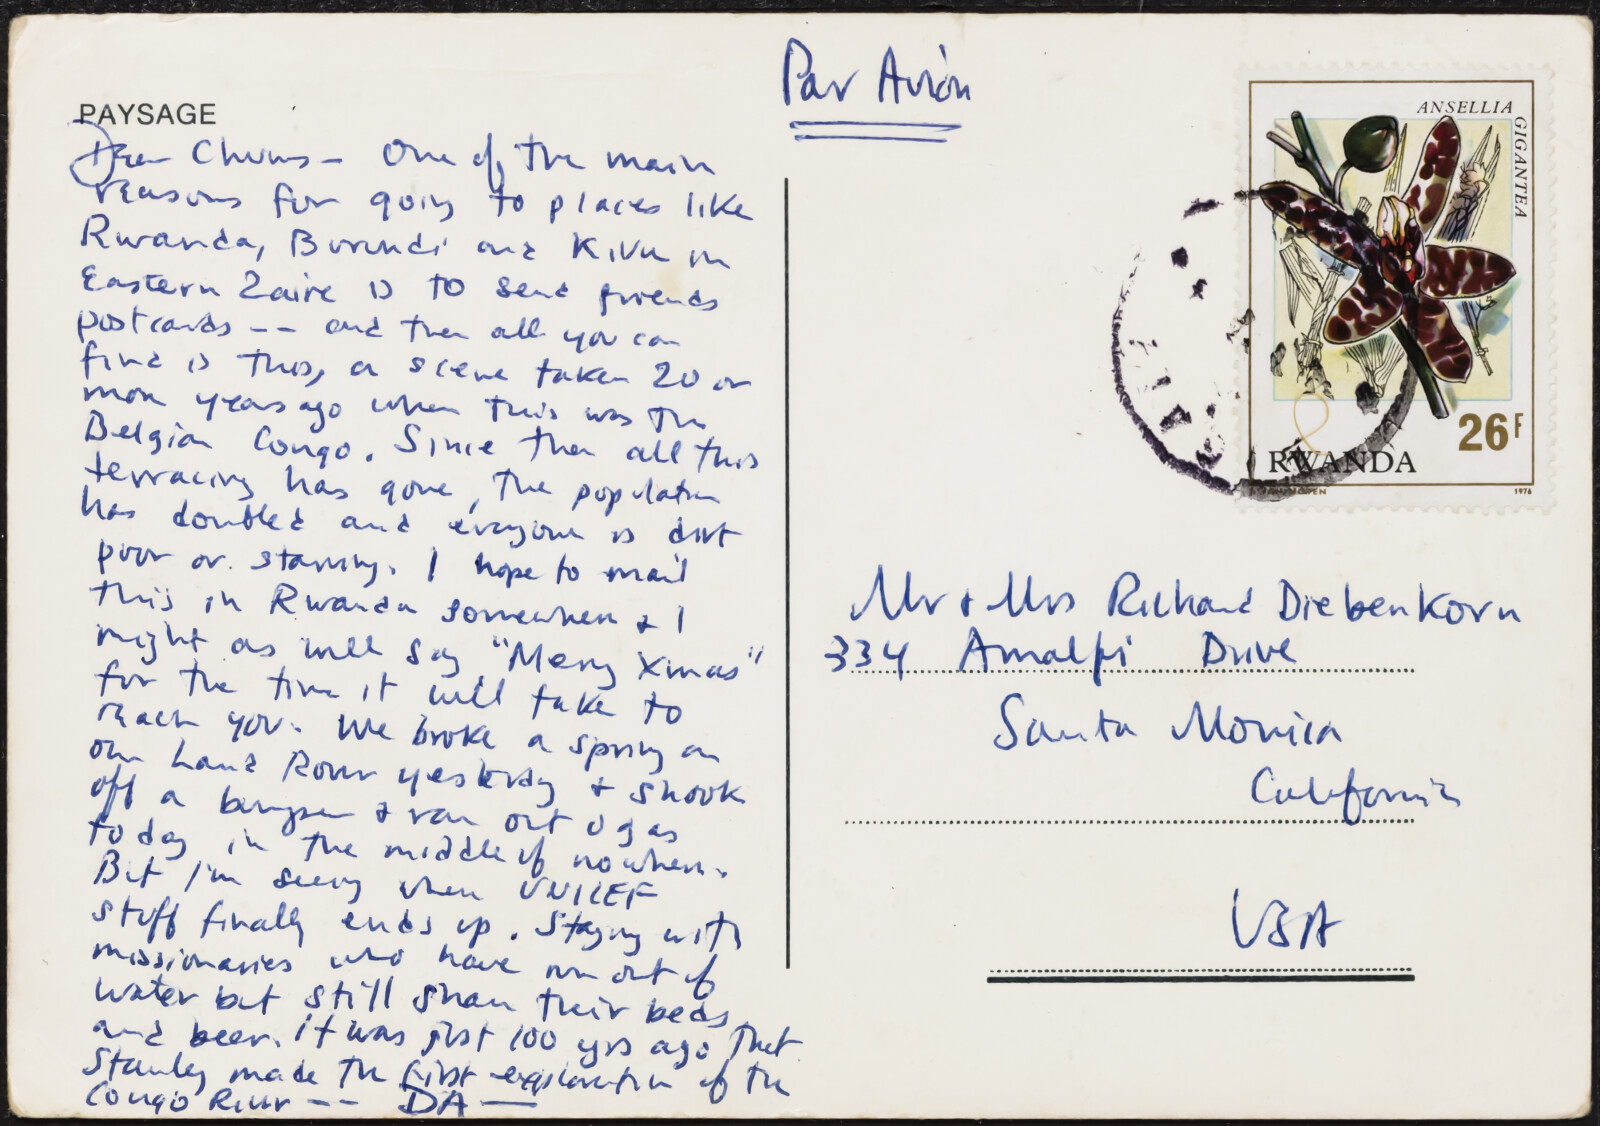 PAYSAGE
Dear Chums - One of the main
reasons for going to places like
Rwanda, Burundi and Kivu in
Eastern Zaire is to send friends
postcards -- and then all you can
find is this, a scene taken 20 or
more years ago when this was the
Belgian Congo. Since then all this
terracing has gone, the population
has doubled and everyone is dirt
poor or starving. I hope to mail
this in Rwanda somewhere & I
might as well say "Merry Xmas"
for the time it will take to
reach you. We broke a spring on
our Land Rover yesterday & shook
off a bumper & ran out of gas
today in the middle of nowhere.
But I'm seeing where UNICEF
stuff finally ends up. Staying with
missionaries who have run out of
water but still share their beds
and beer. It was just 100 yrs ago that
Stanley made the first exploration of the
Congo River -- DA —
Par Avion
ANSELLIA
GIGANTEA
26F
RWANDA
1976
Mr & Mrs Richard Diebenkorn
334 Amalfi Drive
Santa Monica
California
USA